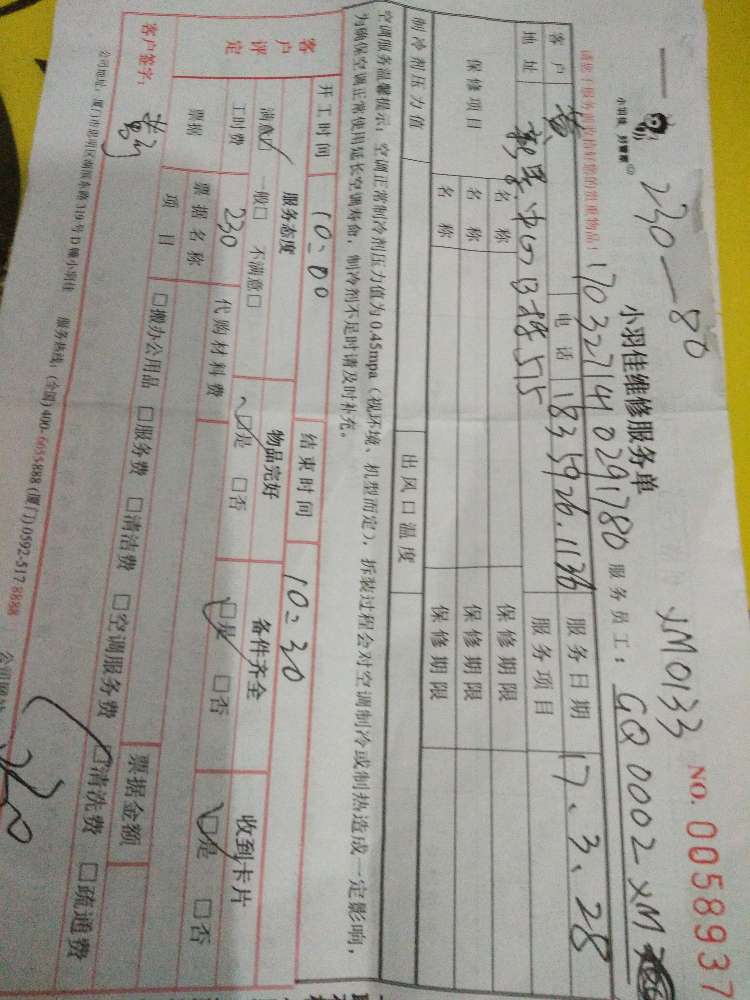 230—80
XM0133
NO. 0058937
小羽佳维修服务单
17032714 0291780
服务员工：GQ0002 XM
请您于服务前收拾好您的贵重物品！
客户 黄
电话 18359261136
服务日期 17、3、28
地址
服务项目
保修项目
名称
保修期限
名称
保修期限
名称
保修期限
制冷剂压力值
出风口温度
空调服务温馨提示：空调正常制冷剂压力值为 0.45mpa（视环境、机型而定），拆装过程会对空调制冷或制热造成一定影响，
为确保空调正常使用延长空调寿命，制冷剂不足时请及时补充。
开工时间 10:00
结束时间 10:30
客户评定
服务态度
物品完好
备件齐全
收到卡片
满意☑ 一般□ 不满意□
☑是 □否
☑是 □否
☑是 □否
工时费 230
代购材料费
票据
票据名称
票据金额
项目
□搬办公用品 □服务费 □清洁费 □空调服务费 ☑清洗费 □疏通费
客户签字：
服务热线：(全国)400-6055888 (厦门)0592-517 8888